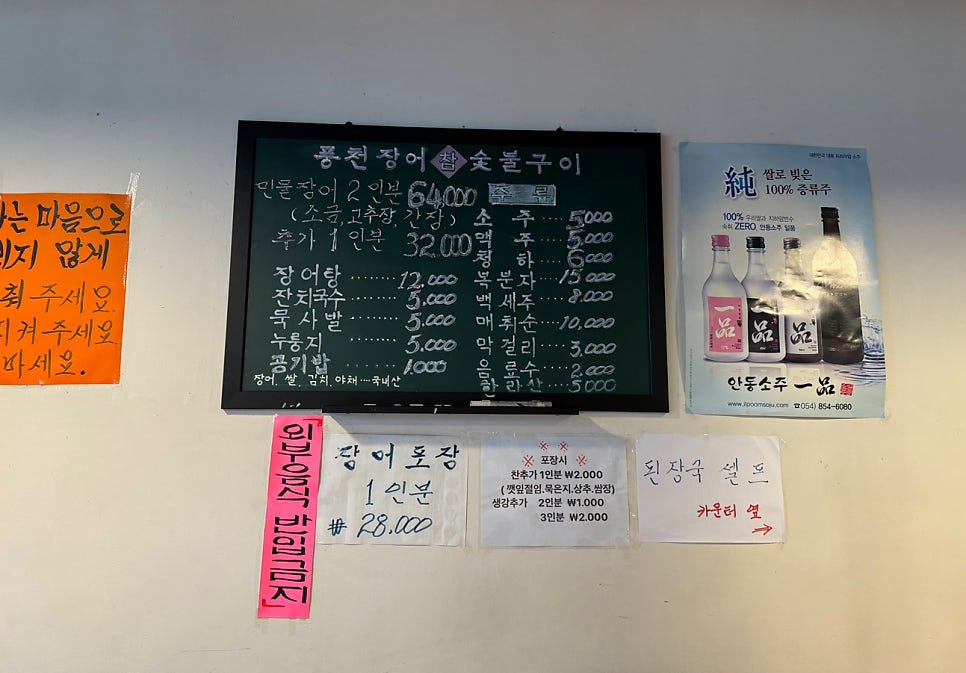 풍천장어 참 숯불구이
민물장어 2인분 64,000
(소금, 고추장, 간장)
추가 1인분 32,000
장어탕 ········ 12,000
잔치국수 ······ 5,000
묵사발 ········ 5,000
누룽지 ······· 5,000
공기밥 ········ 1,000
장어, 쌀, 김치, 야채 ··· 국내산
주류
소주 ····· 5,000
맥주 ····· 5,000
청하 ····· 6,000
복분자 ···· 15,000
백세주 ···· 8,000
매취순 ··· 10,000
막걸리 ···· 3,000
음료수 ···· 2,000
한라산 ···· 5,000
마음으로
않게
춰 주세요
켜 주세요
마세요.
대한민국 대표 프리미엄 소주
純 쌀로 빚은
100% 증류주
100% 우리쌀과 지하암반수
숙취 ZERO, 안동소주 일품
一品
品
品
안동소주 一品
www.ilpoomsoju.com ☎(054) 854-6080
「외부음식 반입금지」
장어포장
1인분
# 28,000
※ ※ ※
※ 포장시 ※
찬추가 1인분 ₩2.000
( 깻잎절임.묵은지.상추.쌈장)
생강추가 2인분 ₩1.000
3인분 ₩2.000
된장국 셀프
카운터 옆
→